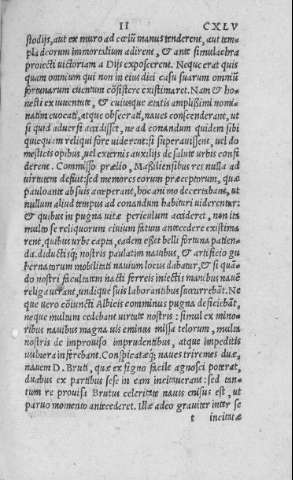 II CXLV
stodijs, aut ex muro ad cœlũ manus tenderent, aut tem
pla deorum immortalium adirent, & ante simulachra
proiecti uictoriam a Dijs exposcerent. Neque erat quis
quam omnium qui non in eius diei casu suarum omniũ
fortunarum euentum cõsistere existimaret. Nam & ho
nesti ex iuuentute, & cuiusque ætatis amplissimi nomi
natim euocati, atque obsecrati, naues conscenderant, ut
si quid aduersi accidisset, ne ad conandum quidem sibi
quicquam reliqui fore uiderent: si superauissent, uel do
mesticis opibus, uel externis auxilijs de salute urbis confi
derent. Commisso prælio, Massiliensibus res nulla ad
uirtutem defuit: sed memores eorum præceptorum, quæ
paulo ante ab suis acceperant, hoc animo decertabant, ut
nullum aliud tempus ad conandum habituri uiderentur:
& quibus in pugna uitæ periculum accideret, non ita
multo se reliquorum ciuium fatum antecedere existima
rent, quibus urbe capta, eadem esset belli fortuna patien
da. diductisq; nostris paulatim nauibus, & artificio gu
bernatorum mobilitati nauium locus dabatur, & si quan
do nostri facultatem nacti ferreis iniectis manibus nauẽ
religauerant, undique suis laborantibus succurrebãt. Ne
que uero cõiuncti Albicis comminus pugna deficiebãt,
neque multum cedebant uirtute nostris: simul ex mino
ribus nauibus magna uis eminus missa telorum, multa
nostris de improuiso imprudentibus, atque impeditis
uulnera inferebant. Conspicatæq; naues triremes duæ,
nauem D. Bruti, quæ ex signo facile agnosci poterat,
duabus ex partibus sese in eam incitauerant: sed tan
tum re prouisa Brutus celeritate nauis enisus est, ut
paruo momento antecederet. Illæ adeo grauiter inter se
t incitatæ